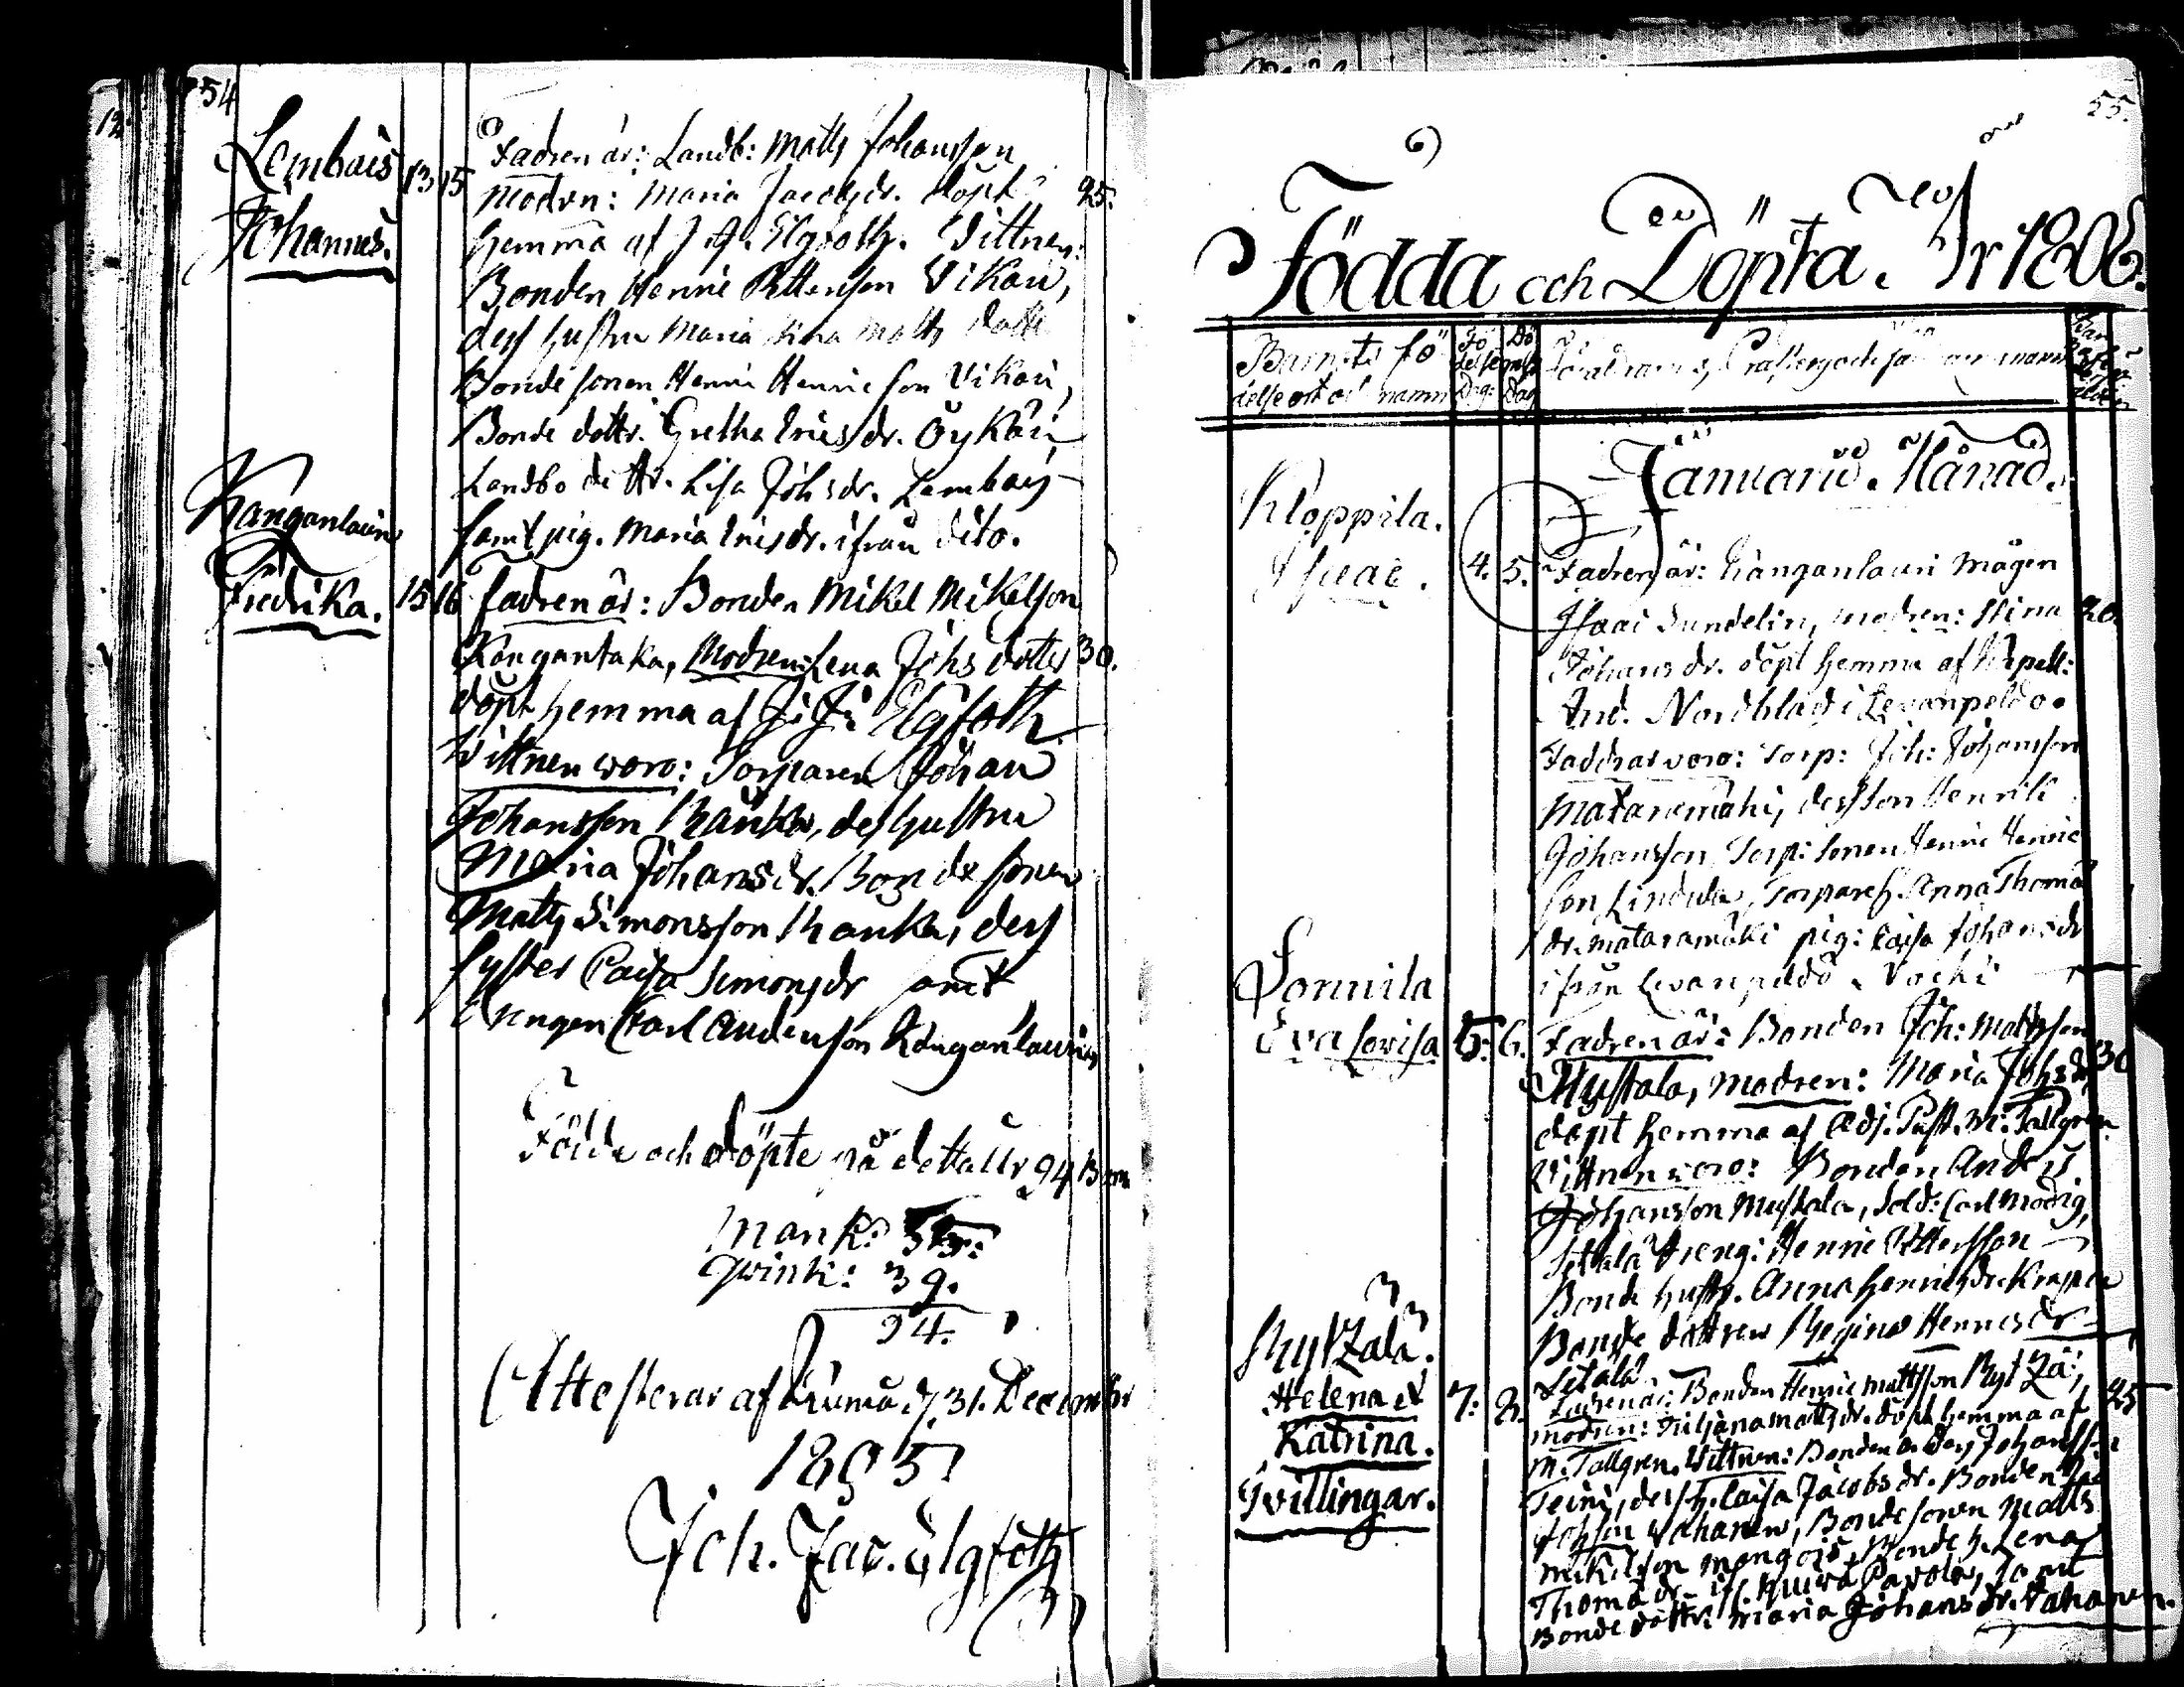 54
Lembois 13 15 Fadren är: Landb: Matts Johansson
Modren: Maria Jacobsdr. döpt 25.
Johannes.
hemma af J. J. Elgfoth. Vittnen:
Bonden Henric Pettersson Vikari,
dess hustru Maria Stina Matts dotter
Bonde sonen Henric Henricsson Vikari,
Bonde dottr. Gretha Ericsdr. Öykäri
Landbo dottr. Lisa Johsdr. Lembois
samt pig. Maria Ericsdr. ifrån dito.
Kanganlauri
Fredrika. 15 16 Fadren är: Bonden Mikel Mikelsson
Kangantaka, Modren: Lena Johs dotter 30.
döpt hemma af J. J. Elgfoth
Vittnen woro: Torparen Johan
Johansson Ranka, dess hustru
Maria Johansdr. Bonde sonen
Matts Simonsson Ranka, dess
syster Caisa Simonsdr samt
Drengen Carl Andersson Kanganlauri
Födde och döpte på detta år 94 Barn
Mank: 55:
Qwink: 39.
94.
Attesterar af Euma d. 31. Decembr
1805
Joh. Jac. Elgfoth
55.
Födda och Döpta. År 1806.
Barnets fö
delse ort och namn
Fö
delse
Dag:
Dö
pelse
Dag
Januarii Månad.
Kloppila.
Isaac. 4. 5. Fadren är: Kanganlauri mågen
Isaac Sundelin, modren: Stina 20.
Johansdr. döpt hemma af Kapell:
And. Nordblad i Levanpeldo.
Faddrar voro: Torp: Joh: Johansson
Mataramäki, dess son Henrik
Johansson, Torp: sonen Henric Henric
son Lindula, Torpares. Anna Thoma
dr. Mataramäki pig: Caisa Johansdr
ifrån Levanpeldo
Tornila
Eva Lovisa 5: 6. Fadren är: Bonden Joh: Mattsson
Mustala, modren: Maria Johsdr 30
döpt hemma af Adj. Past. M: Tallgren.
Vittnen voro: Bonden Anders
Johansson Mustala, Sold: Carl Modig,
Setälä Dreng: Henric Pettersson
Bonde hustr. Anna Henricsdr. Krapila
Bonde dottren Regina Henricsdr
Setälä.
Skytzälä.
Helena et 7: 8. Fadren är: Bonden Henric Mattsson Skytzä: 25
Katrina.
modren: Juliana Mattsdr. döpt hemma af
M. Tallgren. Vittnen: Bonden Anders Johansson
Tvillingar.
Teini, dess h. Caisa Jacobs dr. Bonden
Johson Vahanen, Bonde sonen Matts
Mikelson Mangois, Bonde h. Lena
Thoma dr. Pavola, samt
Bonde dottr. Maria Johans dr. Vahanen.